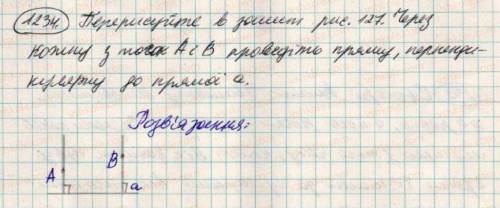 1234. Перерисуйте в зошит рис. 127. Через
кожну з точок А і В проведіть пряму, перпенди-
кулярну до прямої а.
Розв'язання:
А
В
а